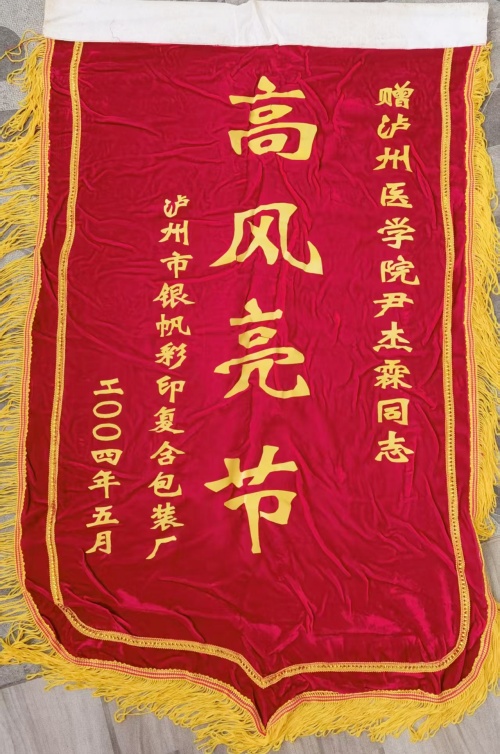 赠泸州医学院尹杰霖同志
高风亮节
泸州市银帆彩印复合包装厂
二〇〇四年五月